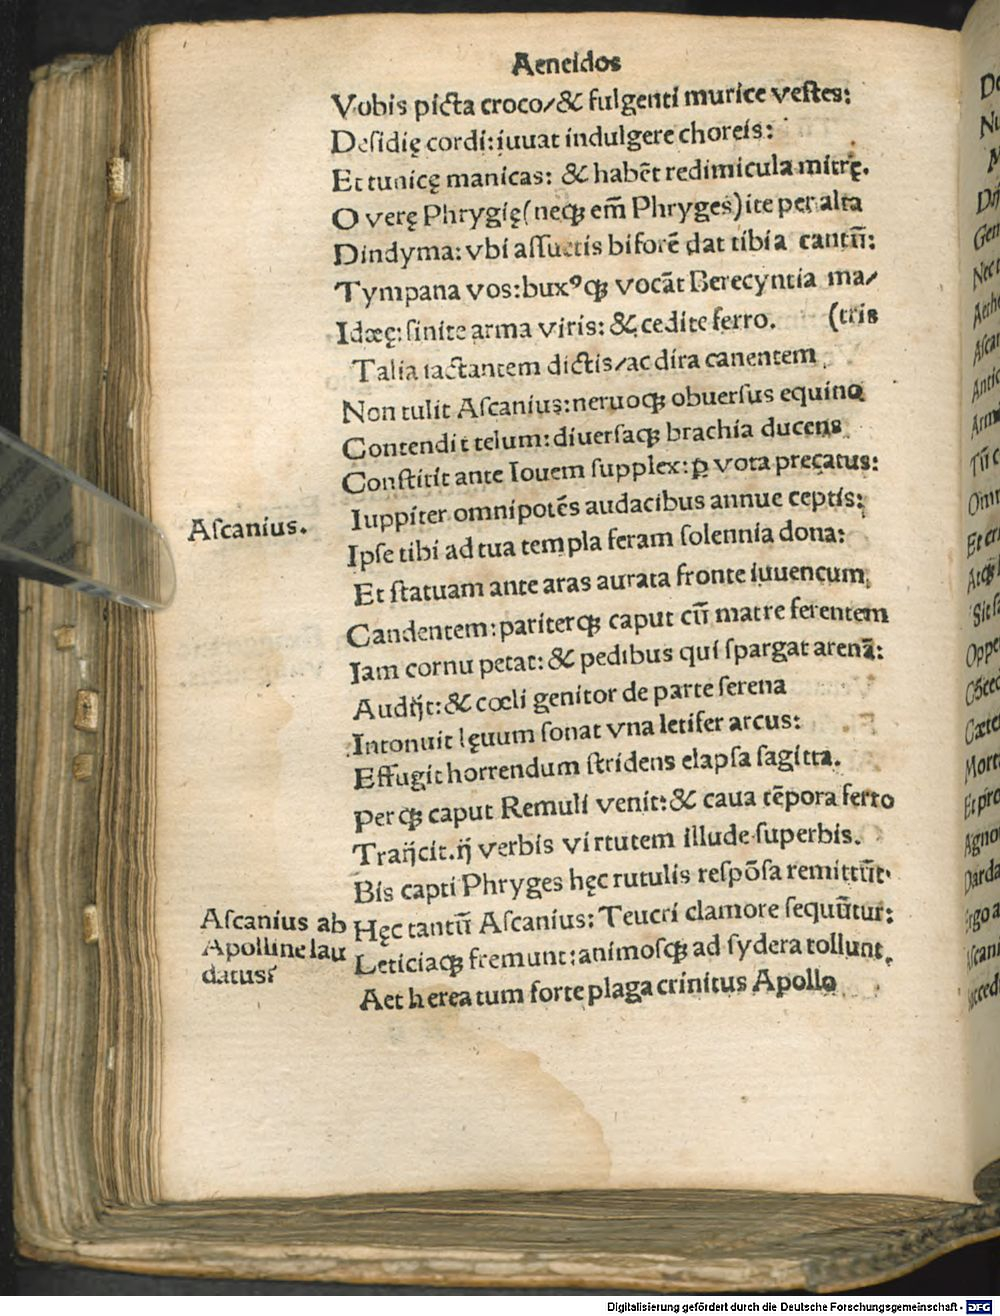 Aeneidos
Vobis picta croco/& fulgenti murice vestes:
Desidię cordi:iuuat indulgere choreis:
Et tunicę manicas: & habēt redimicula mitrę.
O verę Phrygię(neqꝫ em̄ Phryges)ite per alta
Dindyma:vbi assuetis biforē dat tibia cantū:
Tympana vos:buxꝰqꝫ vocāt Berecyntia ma/
Idææ:sinite arma viris:& cedite ferro. (tris
Talia iactantem dictis/ac dira canentem
Non tulit Ascanius:neruoqꝫ obuersus equino
Contendit telum:diuersaqꝫ brachia ducens
Constitit ante Iouem supplex:ꝑ vota precatus:
Iuppiter omnipotēs audacibus annue ceptis:
Ascanius.
Ipse tibi ad tua templa feram solennia dona:
Et statuam ante aras aurata fronte iuuencum
Candentem:pariterqꝫ caput cū matre ferentem
Iam cornu petat:& pedibus qui spargat arenā:
Audijt:& cœli genitor de parte serena
Intonuit lęuum sonat vna letifer arcus:
Effugit horrendum stridens elapsa sagitta.
Perqꝫ caput Remuli venit:& caua tēpora ferro
Traijcit.ij verbis virtutem illude superbis.
Bis capti Phryges hęc rutulis respōsa remittūt.
Hęc tantū Ascanius: Teucri clamore sequūtur:
Leticiaqꝫ fremunt:animosqꝫ ad sydera tollunt.
Aetherea tum forte plaga crinitus Apollo
Ascanius ab
Apolline lau
datus
De
Nu
M
Gen
Nec
Aethe
Ascan
Antiq
Arm
Tū c
Omn
Et
Atqꝫ
Sit
Oppe
Cōced
Cæte
Mort
Et pro
Agno
Darda
Ergo a
Ascani
Succed
Digitalisierung gefördert durch die Deutsche Forschungsgemeinschaft - DFG